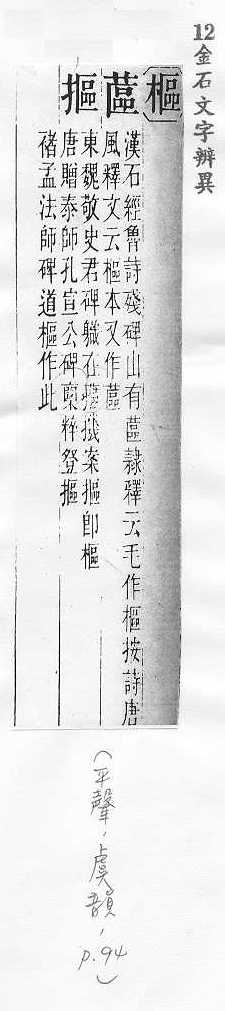 12金石文字辨異
樞
蓲漢石經魯詩殘碑山有蓲隸釋云毛作樞按詩唐
風釋文云樞本又作蓲
摳東魏敬史君碑職在摳機案摳即樞
唐贈泰師孔宣公碑稟粹登摳
褚孟法師碑道樞作此
(平聲,虞韻,
p.94)